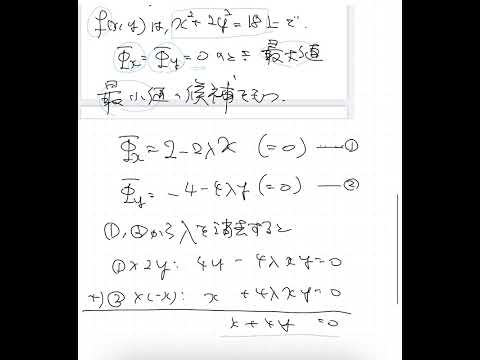 f(x,y)は, x²+2y²=18上で
Φx=Φy=0のとき最大値
最小値の候補をもつ.
Φx=2-2λx (=0) —①
Φy=-4-4λy (=0) —②
①,②からλを消去すると
①×2y: 4y - 4λxy=0
+) ②×(-x): x +4λxy=0
x+4y =0